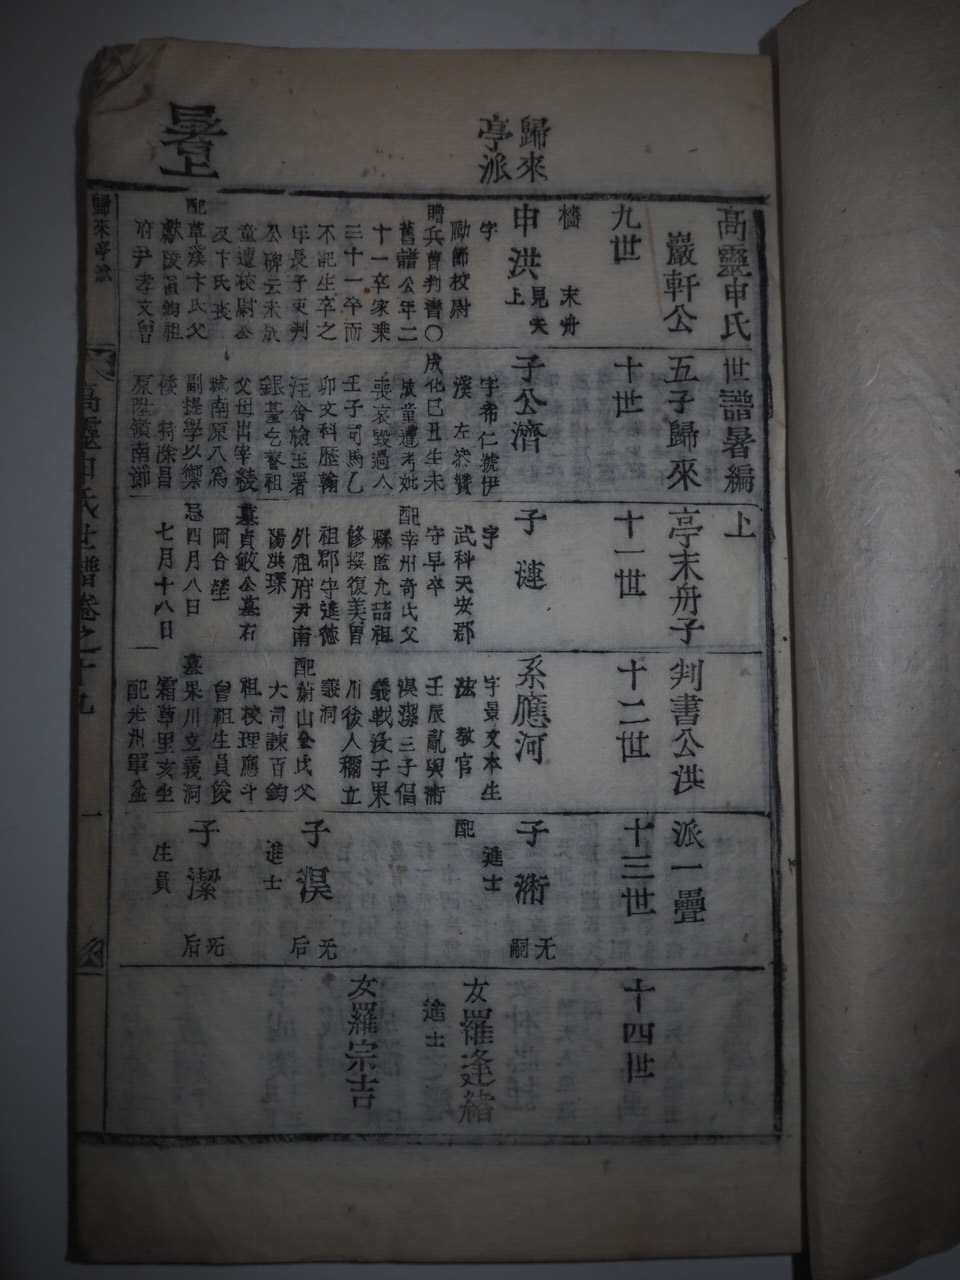 歸來
亭派
暑上
高靈申氏世譜暑編上
巖軒公五子歸來亭末舟子判書公洪派一疊
九世
十世
十一世
十二世
十三世
十四世
檣 末舟
申洪 見天上
字
勵節校尉
贈兵曹判書〇
舊譜公年二
十一卒家乘
三十一卒而
不記生卒之
年長子吏判
公碑云未成
童遭校尉公
及卞氏喪
配草溪卞氏父
獻陵直鈞祖
府尹孝文曾
子公濟
字希仁號伊
溪 左參贊
成化己丑生未
成童連考妣
喪哀毀過人
壬子司馬乙
卯文科歷翰
注舍檢玉署
銀臺乞養祖
父母出宰綾
城南原八爲
副提學以鄕
倭 特除昌
原陞嶺南節
子漣
字
武科天安郡
守早卒
配幸州奇氏父
縣監允喆祖
修撰復美曾
祖郡守進德
外祖府尹南
陽洪琛
墓貞敏公墓右
岡合塟
忌四月八日
七月十八日
系應河
字景文本生
法 敎官
壬辰亂與濟
淏潔三子倡
義戰没于果
川後人稱立
義洞
配蔚山金氏父
大司諫百鈞
祖校理應斗
曾祖生員俊
墓果川立義洞
霜草里亥坐
配光州軍益
子 无嗣
進士
配
子淏 无后
進士
子潔 无后
生員
女羅逢緖
進士
女羅宗吉
歸來亭派
高靈申氏世譜卷之十九
一